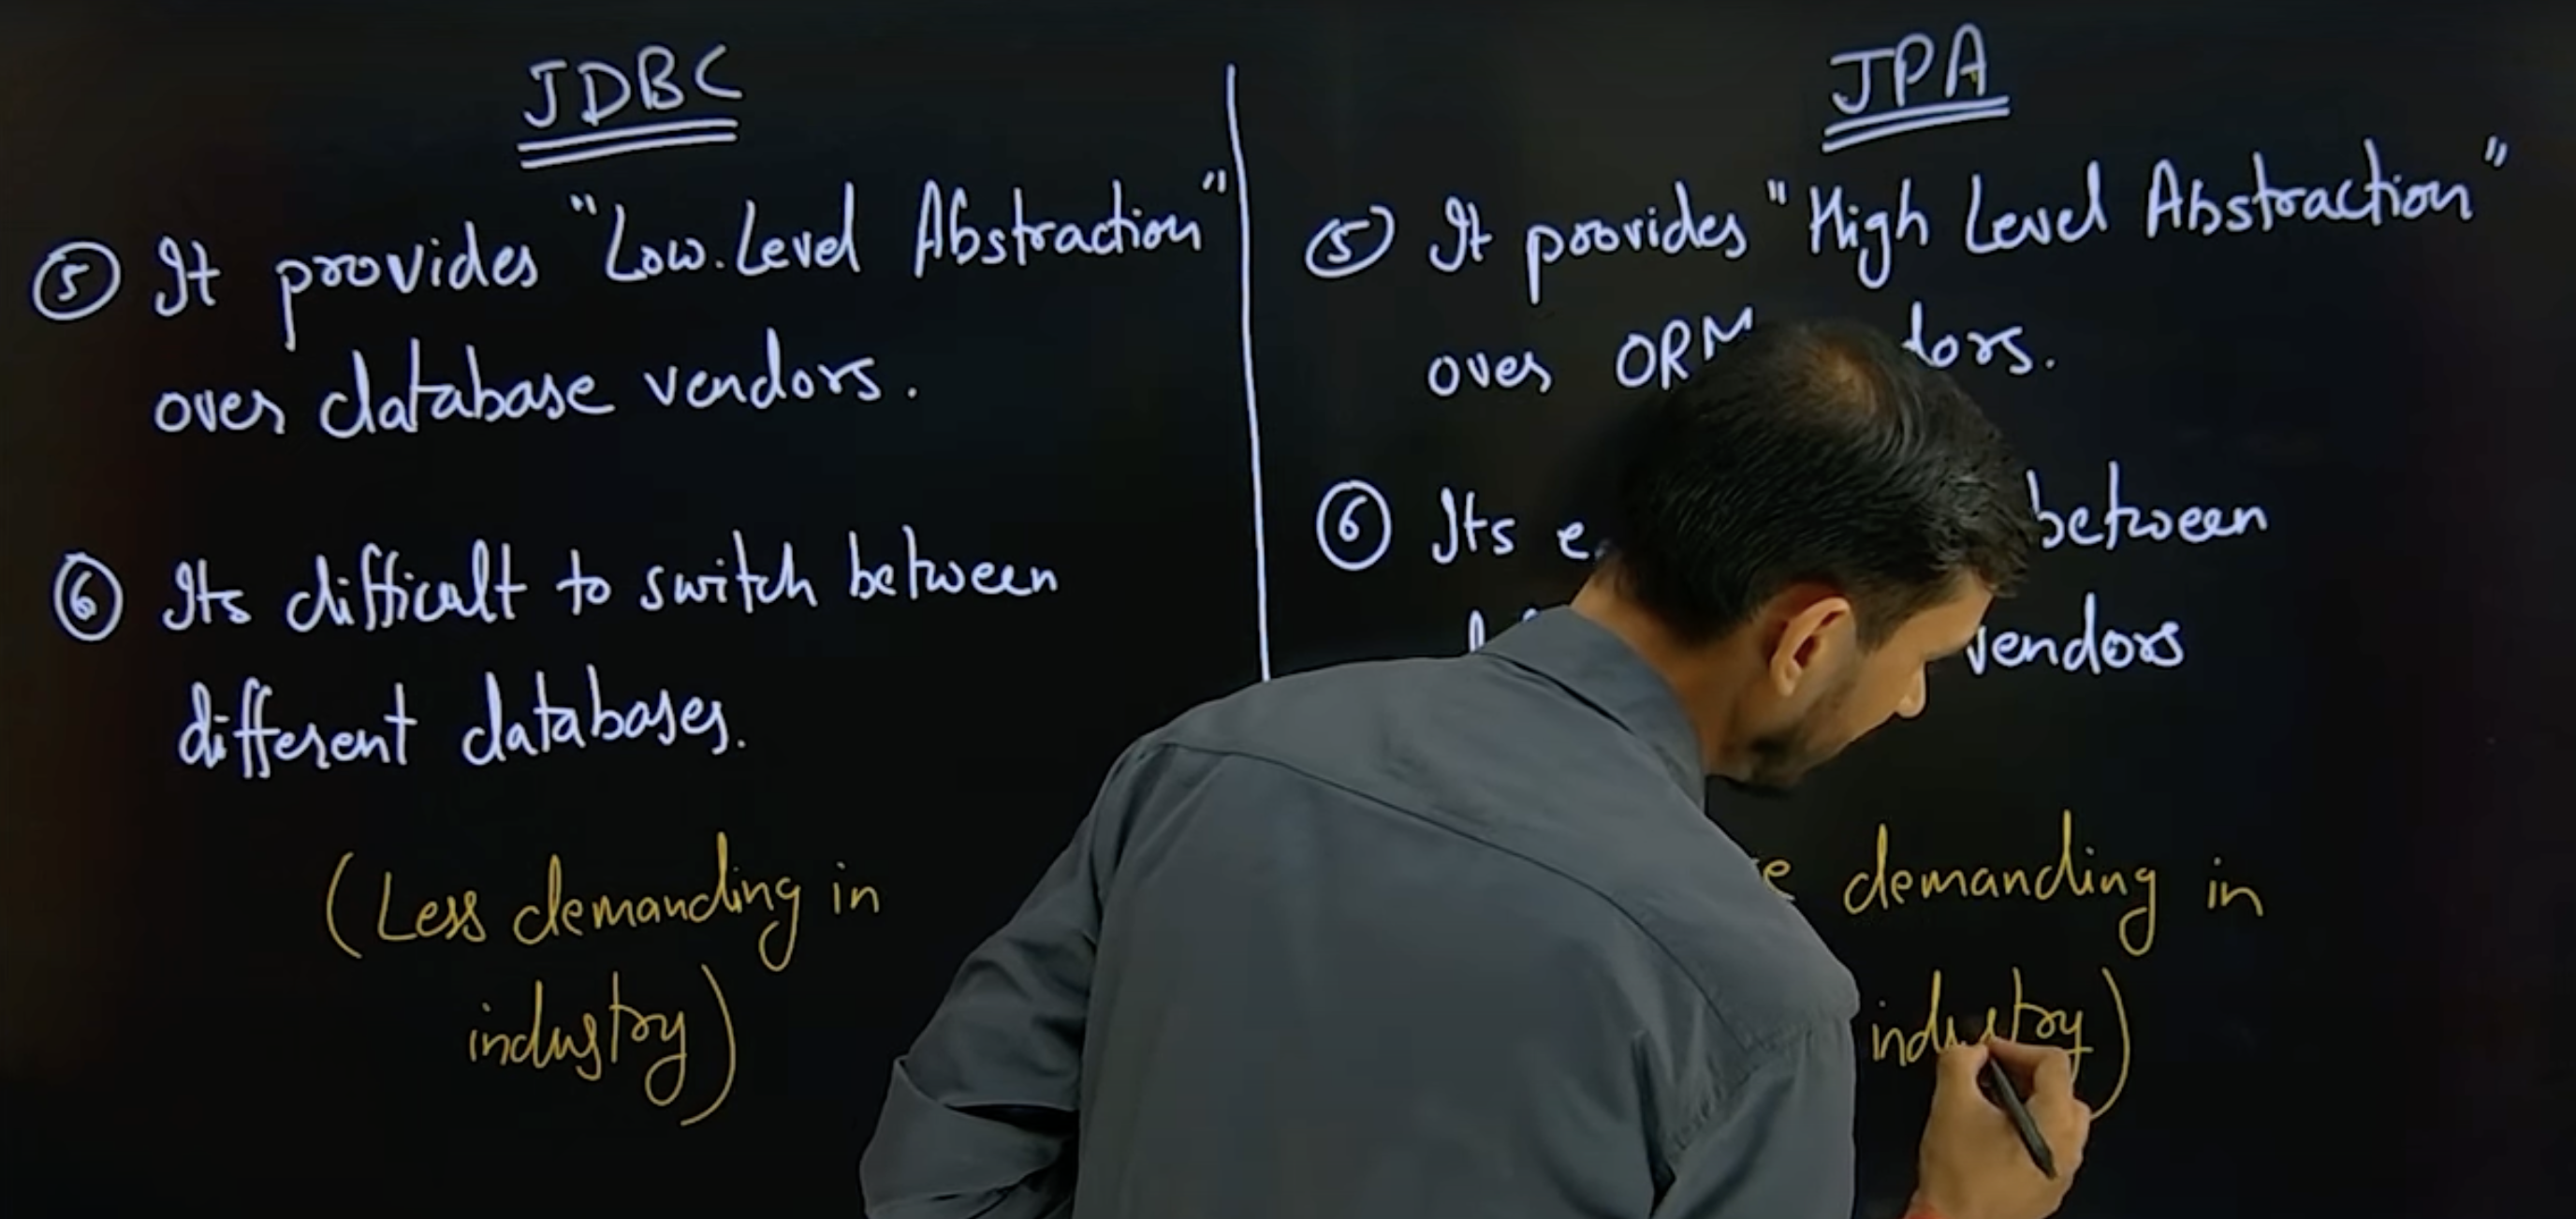 JDBC
⑤ It provides "Low.Level Abstraction"
over database vendors.
⑥ Its difficult to switch between
different databases.
(Less demanding in
industry)
JPA
⑤ It provides "High Level Abstraction"
over ORM
⑥ Its between
vendors
demanding in
industry)